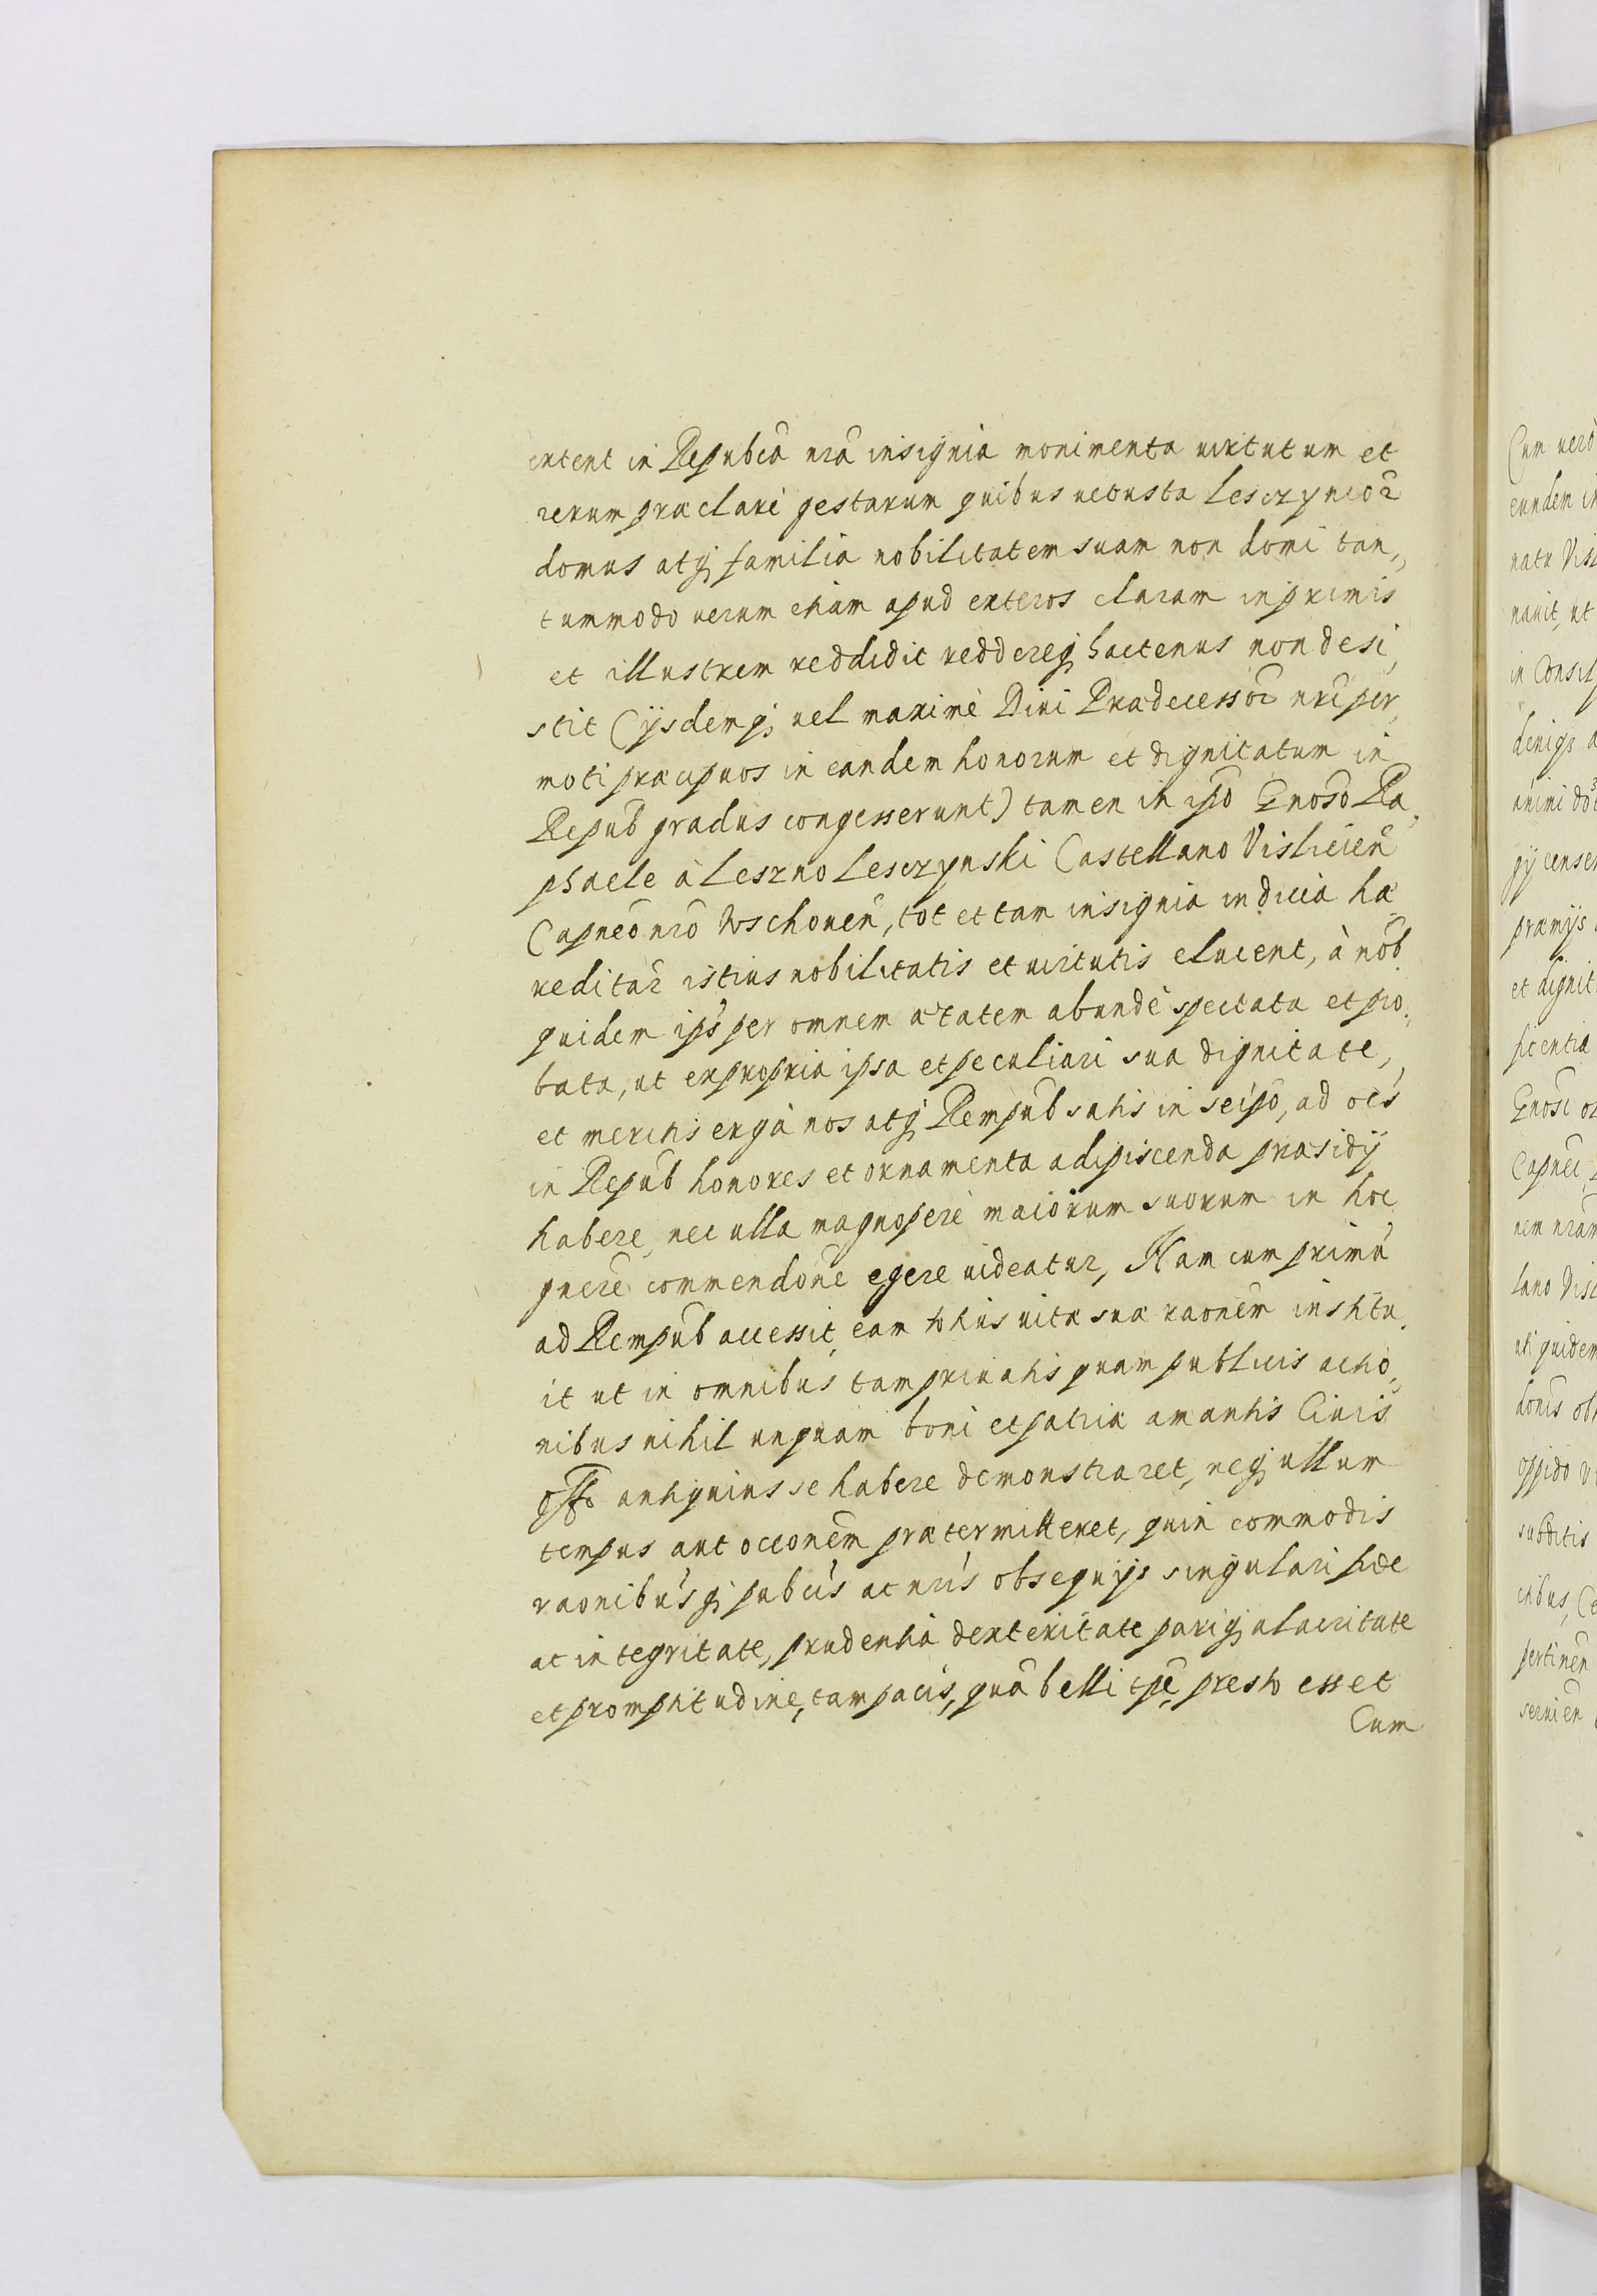 extent in Repubcâ nrâ insignia monimenta uirtutum et
rerum præclarè gestarum quibus uetusta Lesczyncior̃
domus atq; familia nobilitatem suam non domi tan,,
tummodo uerum etiam apud exteros claram inprimis
et illustrem reddidit reddereq; hactenus non desi,
stit (ijsdemq; uel maximè Diui Prædecessor̃ nr̃i per,
moti præcipuos in eandem honorum et dignitatum in
Repub̃ gradus congesserunt) tamen in ip̃o Gnoso Ra,
phaele à Leszno Lesczynski Castellano Visliciẽn
Capneo nr̃o Wschouẽn, tot et tam insignia indicia hæ
reditar̃ istius nobilitatis et uirtutis elucent, à nob̃
quidem ip̃s per omnem ætatem abundè spectata et pro,
bata, ut ex propria ipsa et peculiari sua dignitate,
et meritis ergà nos atq; Rempub̃ satis in seip̃o, ad oẽs
in Repub̃ honores et ornamenta adipiscenda præsidij
habere, nec ulla magnoperè maiorum suorum in hoc
gnere commendõne egere uideatur, Nam cum primũ
ad Rempub̃ accessit, eam totius uitæ suæ raõnem institu,
it ut in omnibus tam priuatis quam publicis actio,
nibus nihil unquam boni et patriæ amantis Ciuis
offo antiquius se habere demonstraret, neq; ullum
tempus aut occõnem prætermitteret, quin commodis
raõnibusq; pubcis ac nr̃is obsequijs singulari fide
ac integritate, prudentia dexteritate pariq; alacritate
et promptitudine, tam pacis, quã belli tp̃e presto esset
Cum
Cum uero
eundem in
natu Visl
nauit, ut
in Consil
deniq; a
animi do
gij censer
præmijs
et dignit
ficentia
Gnosi
Capnei
nem nram
lano Visl
uti quidem
donis ob
oppido
subditis
ctibus,
pertinẽn
seruiẽn